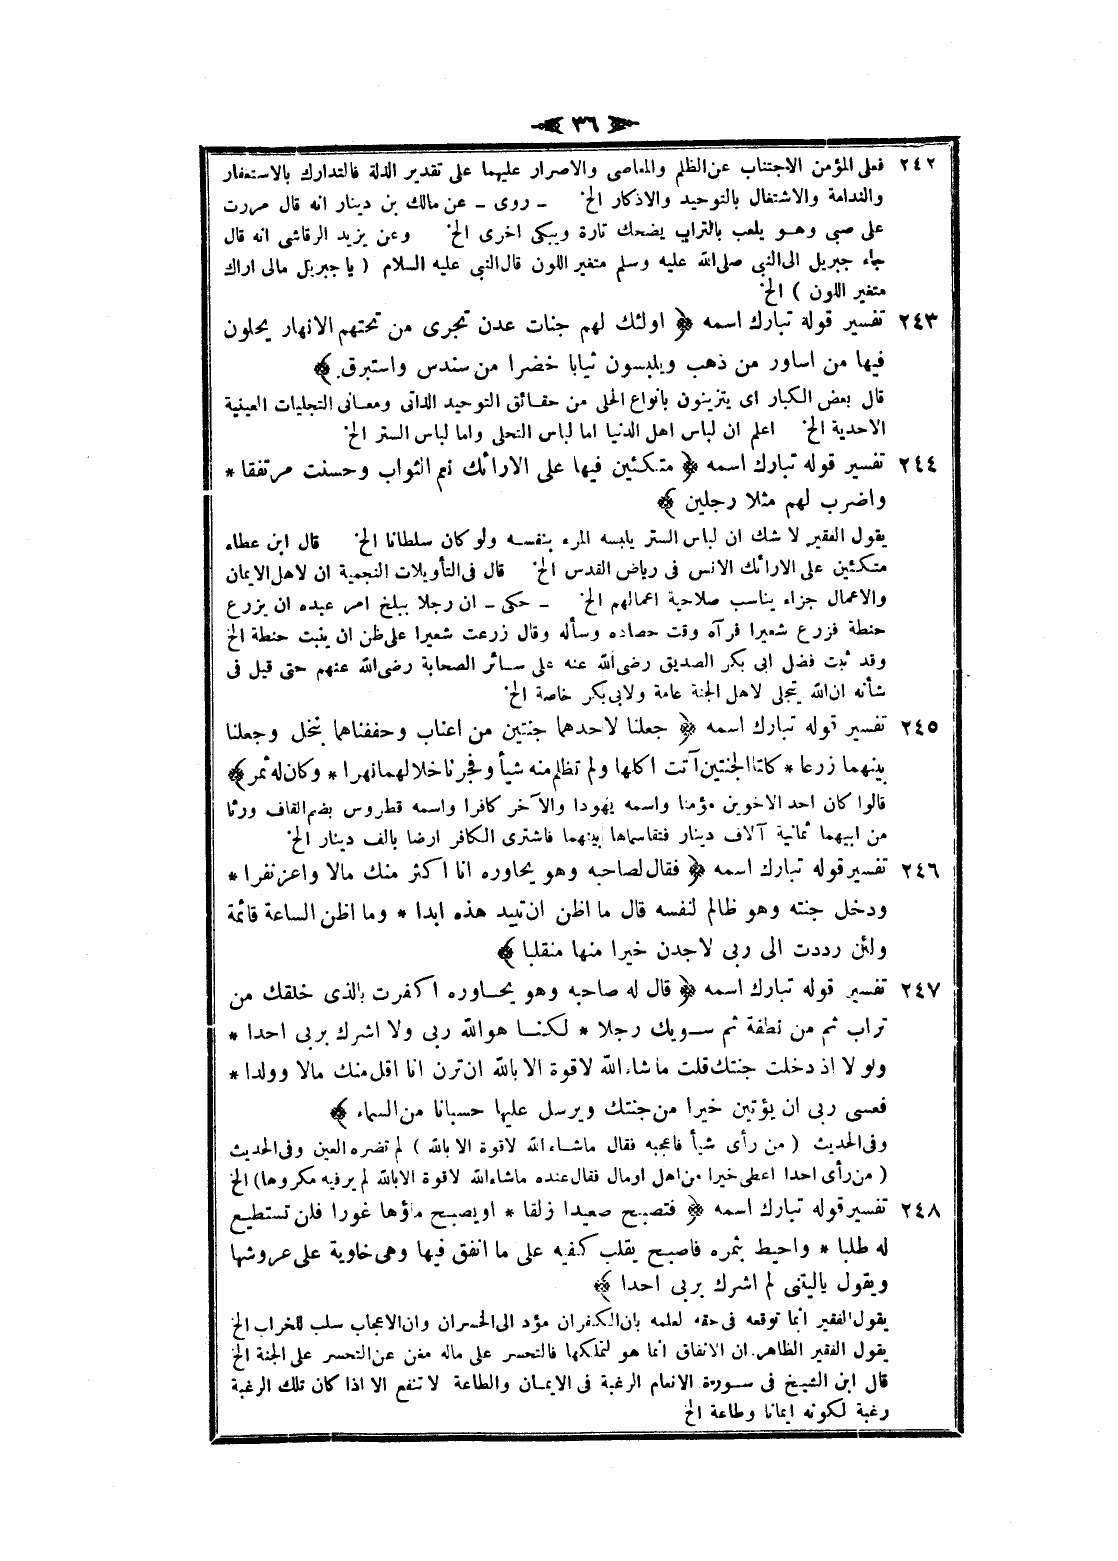 ﴿ ٣٦ ﴾
٢٤٢ فعلى المؤمن الاجتناب عن الظلم والمعاصى والاصرار عليهما على تقدير الذلة فالتدارك بالاستغفار
والندامة والاشتغال بالتوحيد والاذكار الخ ـ روى ـ عن مالك بن دينار انه قال مررت
على صبى وهو يلعب بالتراب يضحك تارة ويبكى اخرى الخ وعن يزيد الرقاشى انه قال
جاء جبريل الى النبى صلى الله عليه وسلم متغير اللون قال النبى عليه السلام ( يا جبريل مالى اراك
متغير اللون ) الخ
٢٤٣ تفسير قوله تبارك اسمه ﴿ اولئك لهم جنات عدن تجرى من تحتهم الانهار يحلون
فيها من اساور من ذهب ويلبسون ثيابا خضرا من سندس واستبرق ﴾
قال بعض الكبار اى يتزينون بانواع الحلى من حقائق التوحيد الذاتى ومعانى التجليات العينية
الاحدية الخ اعلم ان لباس اهل الدنيا اما لباس التحلى واما لباس الستر الخ
٢٤٤ تفسير قوله تبارك اسمه ﴿ متكئين فيها على الارائك نعم الثواب وحسنت مرتفقا *
واضرب لهم مثلا رجلين ﴾
يقول الفقير لا شك ان لباس الستر يلبسه المرء بنفسه ولو كان سلطانا الخ قال ابن عطاء
متكئين على الارائك الانس فى رياض القدس الخ قال فى التأويلات النجمية ان لاهل الايمان
والاعمال جزاء يناسب صلاحية اعمالهم الخ ـ حكى ـ ان رجلا ببلخ امر عبده ان يزرع
حنطة فزرع شعيرا فرآه وقت حصاده وسأله وقال زرعت شعيرا على ظن ان ينبت حنطة الخ
وقد ثبت فضل ابى بكر الصديق رضى الله عنه على سائر الصحابة رضى الله عنهم حتى قيل فى
شأنه ان الله يتجلى لاهل الجنة عامة ولابى بكر خاصة الخ
٢٤٥ تفسير قوله تبارك اسمه ﴿ جعلنا لاحدهما جنتين من اعناب وحففناهما بنخل وجعلنا
بينهما زرعا * كلتا الجنتين آتت اكلها ولم تظلم منه شيأ وفجرنا خلالهما نهرا * وكان له ثمر ﴾
قالوا كان احد الاخوين مؤمنا واسمه يهودا والآخر كافرا واسمه قطروس بضم القاف ورثا
من ابيهما ثمانية آلاف دينار فتقاسماها بينهما فاشترى الكافر ارضا بالف دينار الخ
٢٤٦ تفسير قوله تبارك اسمه ﴿ فقال لصاحبه وهو يحاوره انا اكثر منك مالا واعز نفرا *
ودخل جنته وهو ظالم لنفسه قال ما اظن ان تبيد هذه ابدا * وما اظن الساعة قائمة
ولئن رددت الى ربى لاجدن خيرا منها منقلبا ﴾
٢٤٧ تفسير قوله تبارك اسمه ﴿ قال له صاحبه وهو يحاوره اكفرت بالذى خلقك من
تراب ثم من نطفة ثم سويك رجلا * لكنا هو الله ربى ولا اشرك بربى احدا *
ولو لا اذ دخلت جنتك قلت ما شاء الله لا قوة الا بالله ان ترن انا اقل منك مالا وولدا *
فعسى ربى ان يؤتين خيرا من جنتك ويرسل عليها حسبانا من السماء ﴾
وفى الحديث ( من رأى شيأ فاعجبه فقال ما شاء الله لا قوة الا بالله ) لم تضره العين وفى الحديث
( من رأى احدا اعطى خيرا من اهل او مال فقال عنده ما شاء الله لا قوة الا بالله لم ير فيه مكروها) الخ
٢٤٨ تفسير قوله تبارك اسمه ﴿ فتصبح صعيدا زلقا * او يصبح ماؤها غورا فلن تستطيع
له طلبا * واحيط بثمره فاصبح يقلب كفيه على ما انفق فيها وهى خاوية على عروشها
ويقول ياليتنى لم اشرك بربى احدا ﴾
يقول الفقير انما توقعه فى حقه لعلمه بان الكفران مؤد الى الخسران وان الاعجاب سلب للخراب الخ
يقول الفقير الظاهر ان الانفاق انما هو لتملكها فالتحسر على ماله مغن عن التحسر على الجنة الخ
قال ابن الشيخ فى سورة الانعام الرغبة فى الايمان والطاعة لا تنفع الا اذا كان تلك الرغبة
رغبة لكونه ايمانا وطاعة الخ